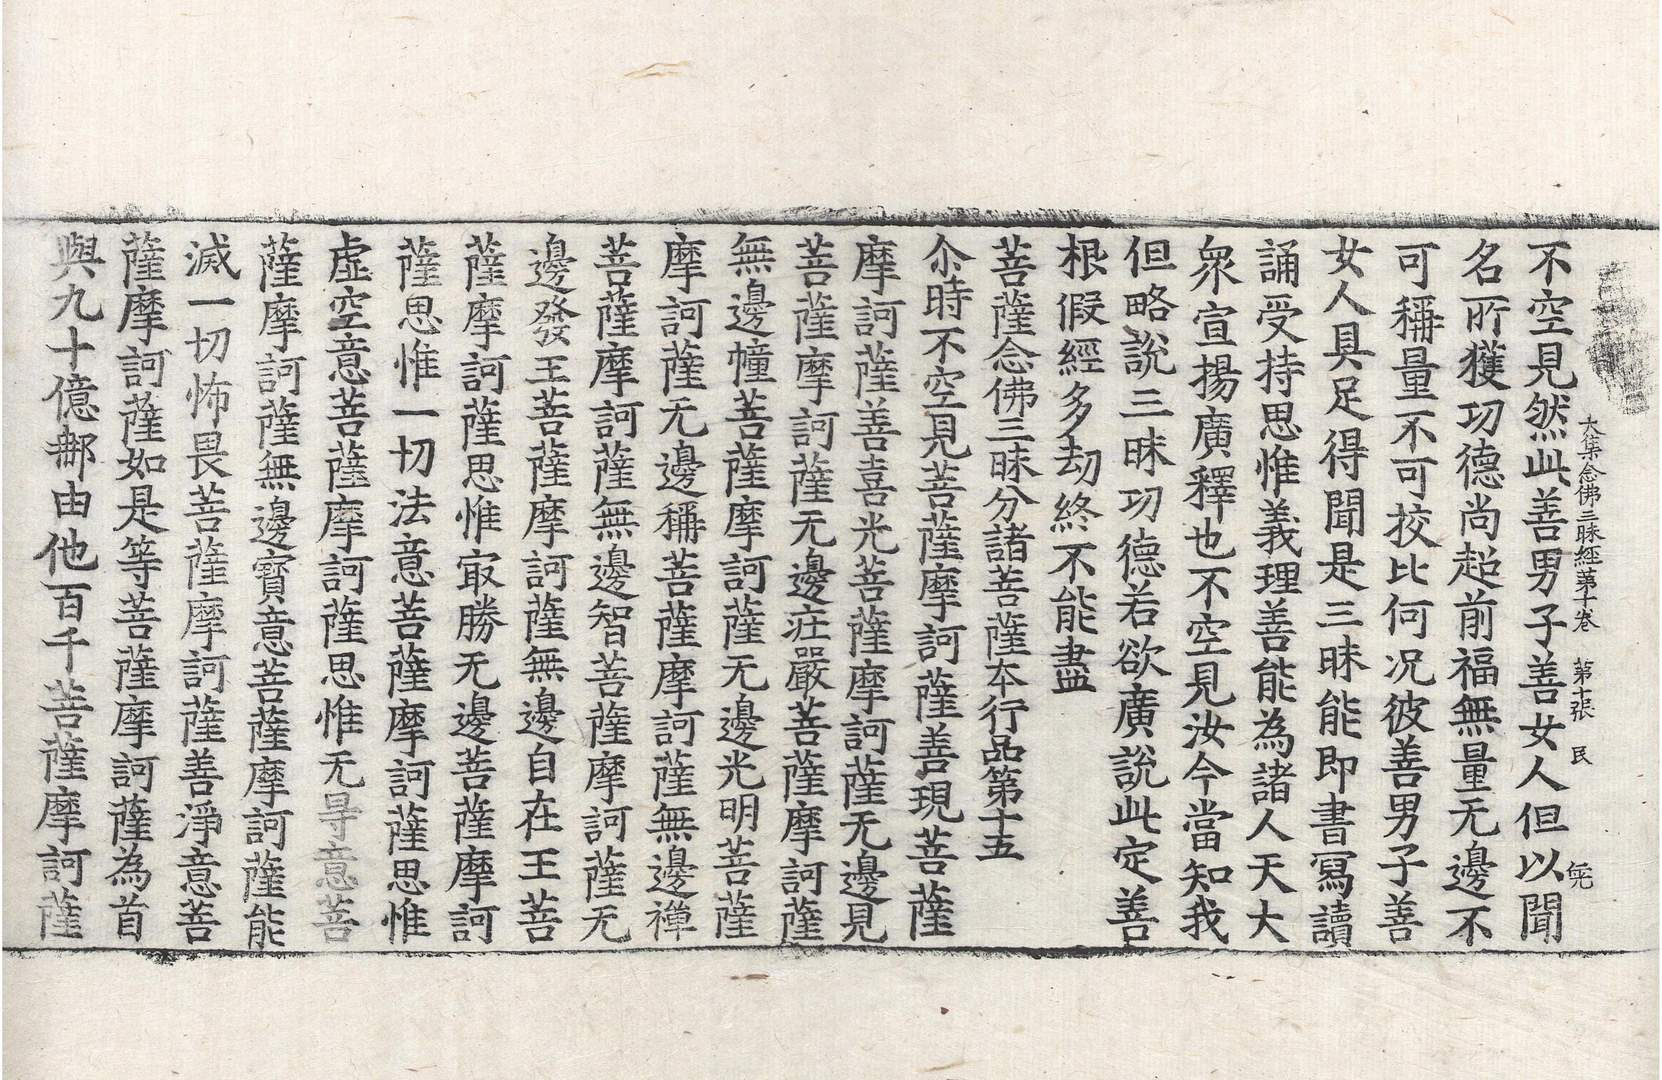 大集念佛三昧經第十卷　第十張　民
不空見然此善男子善女人但以聞
名所獲功德尚超前福無量无邊不
可稱量不可挍比何况彼善男子善
女人具足得聞是三昧能即書寫讀
誦受持思惟義理善能為諸人天大
衆宣揚廣釋也不空見汝今當知我
但略說三昧功德若欲廣說此定善
根假經多劫終不能盡
菩薩念佛三昧分諸菩薩本行品第十五
尒時不空見菩薩摩訶薩善現菩薩
摩訶薩善喜光菩薩摩訶薩无邊見
菩薩摩訶薩无邊疘嚴菩薩摩訶薩
無邊幢菩薩摩訶薩无邊光明菩薩
摩訶薩无邊稱菩薩摩訶薩無邊禪
菩薩摩訶薩無邊智菩薩摩訶薩无
邊發王菩薩摩訶薩無邊自在王菩
薩摩訶薩思惟㝡勝无邊菩薩摩訶
薩思惟一切法意菩薩摩訶薩思惟
虛空意菩薩摩訶薩思惟无㝵意菩
薩摩訶薩無邊寶意菩薩摩訶薩能
滅一切怖畏菩薩摩訶薩善淨意菩
薩摩訶薩如是等菩薩摩訶薩為首
與九十億䣝由他百千菩薩摩訶薩